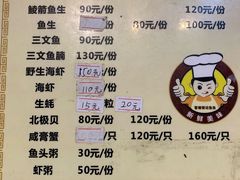 鲮箭鱼生 90元/份 120元/份
鱼生 80元/份 100元/份
三文鱼 90元/份
三文鱼腩 130元/份
野生海虾 150元/份
海虾 110元/份
生蚝 15元 粒 20元
北极贝 80元/份 120元/份
咸膏蟹 /只 120元/只 160元/只
鱼头粥 30元/份
虾粥 50元/份
新鲜美味